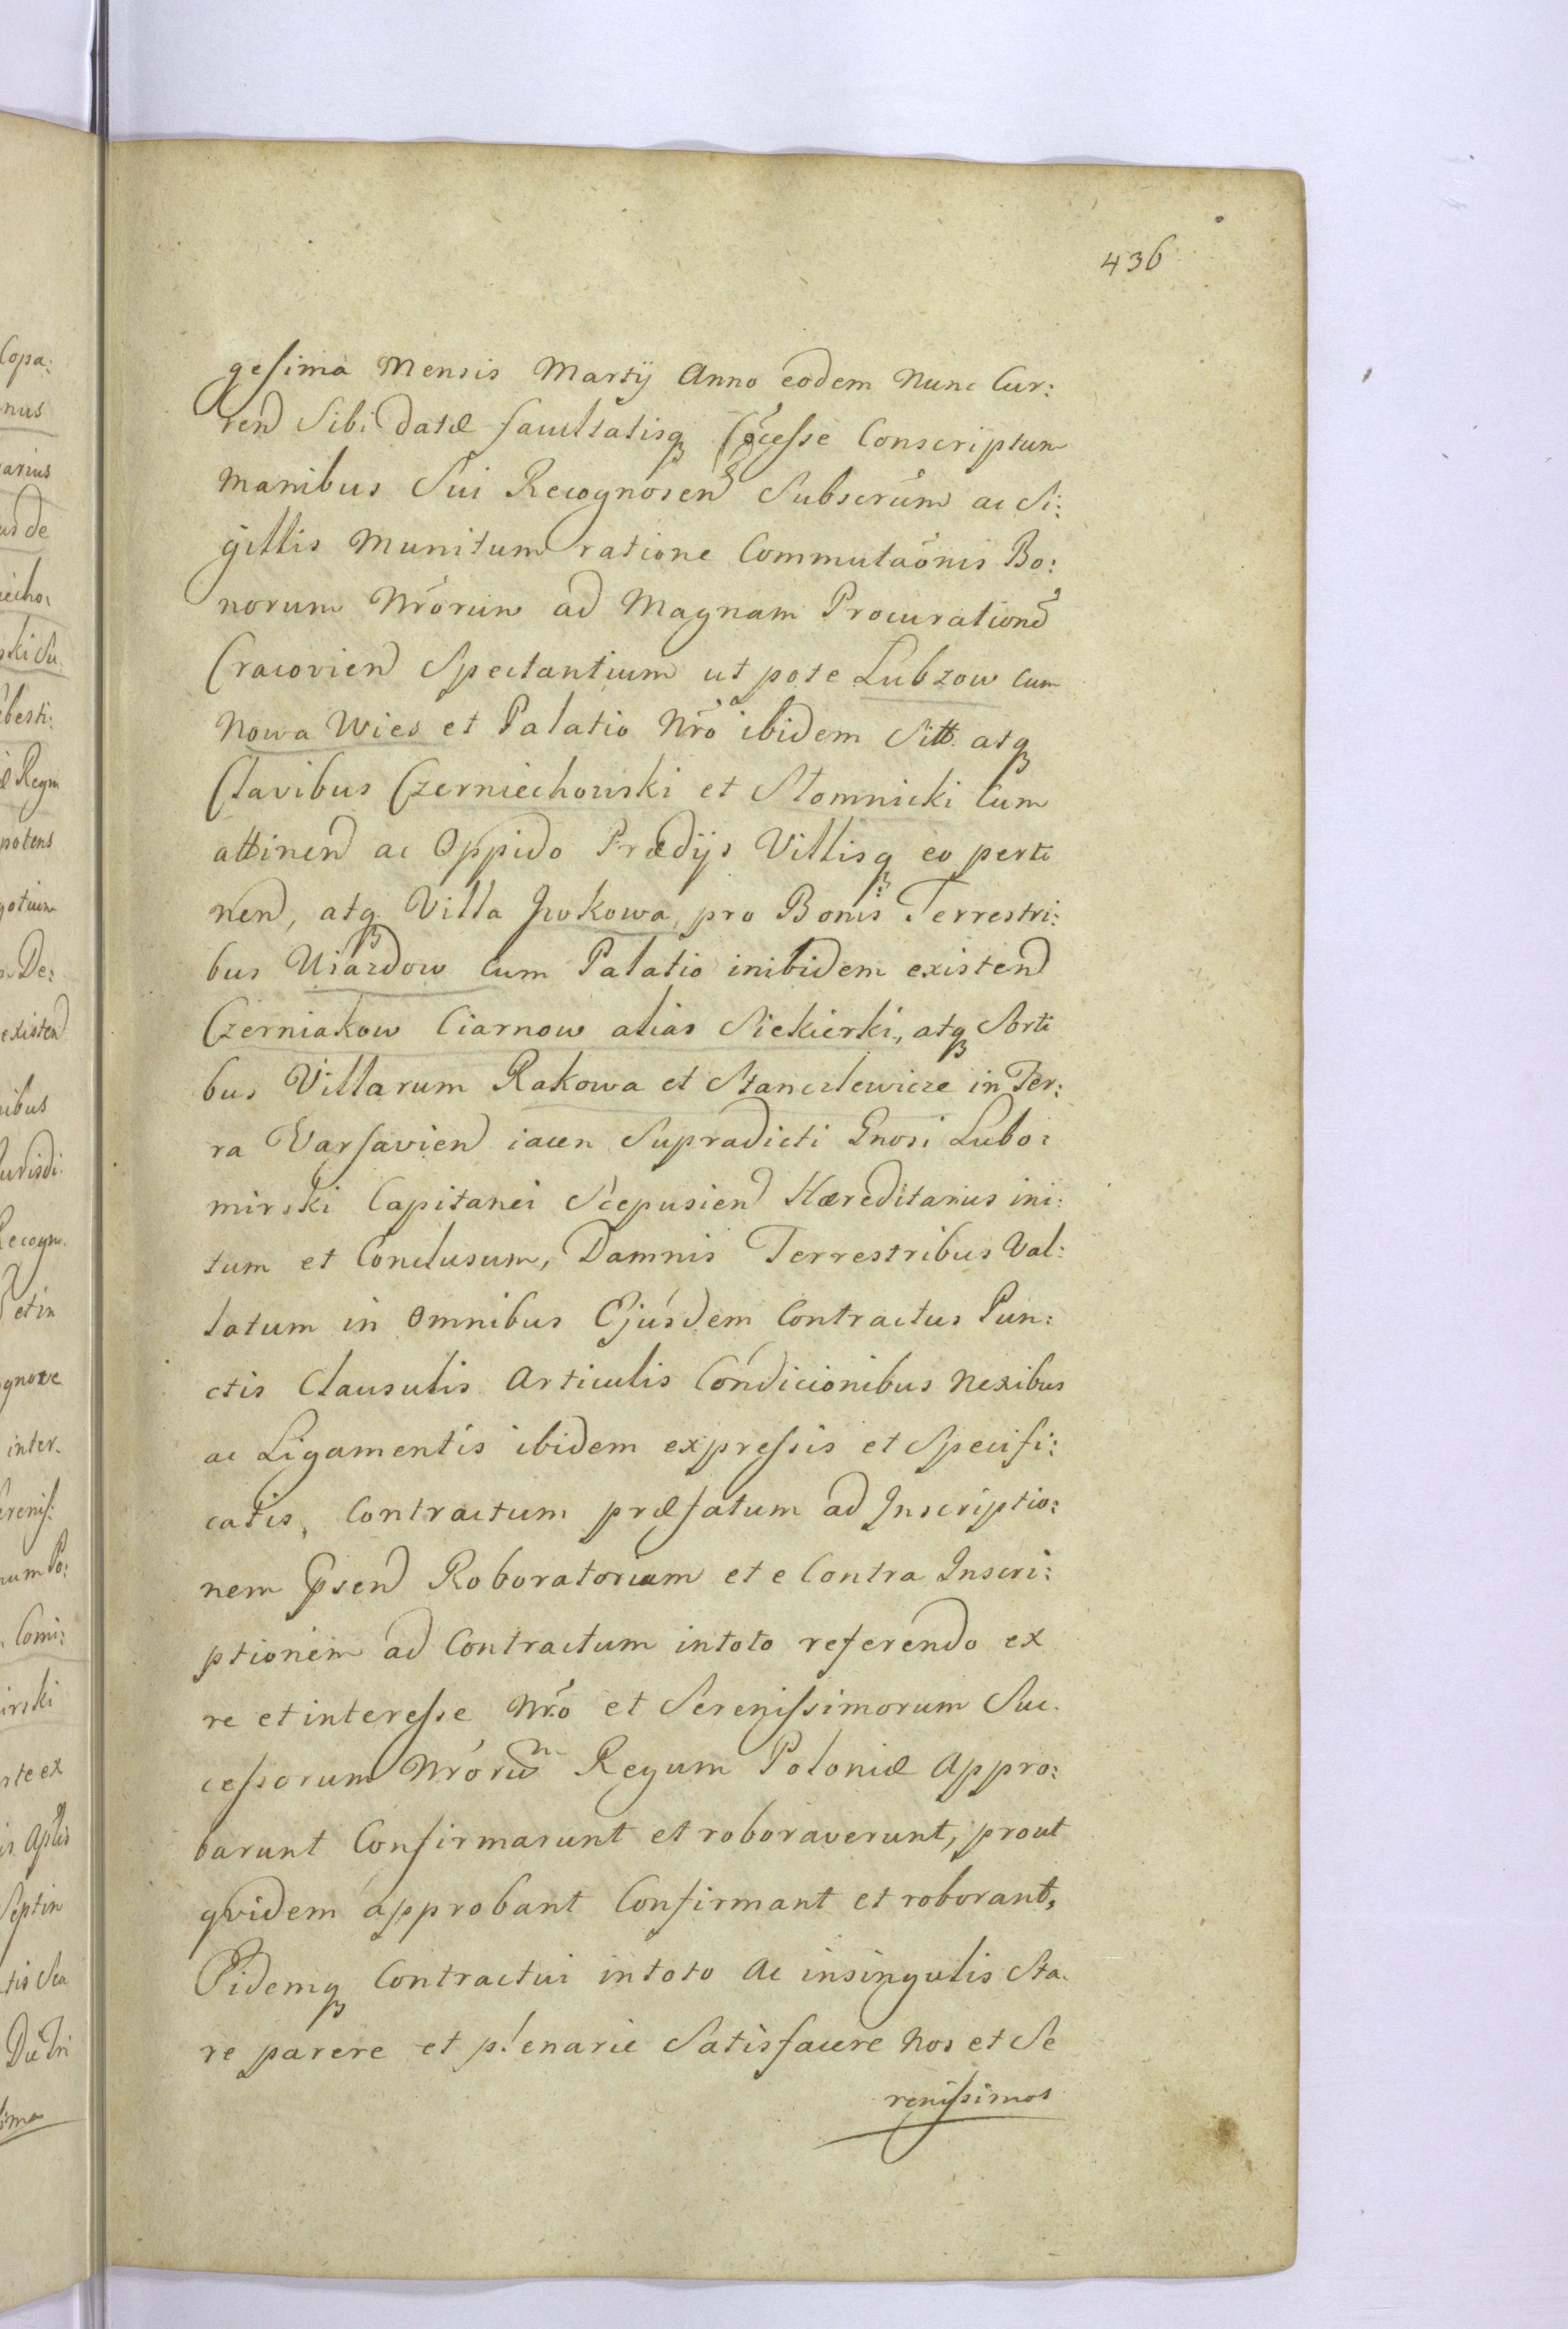 436
gesima Mensis Martij Anno eodem Nunc Cur:
rend Sibi Datæ facultatisq Cõcesse Conscriptum
Manibus Sui Recognoscend Subscrum ac Si:
gillis Munitum ratione Commutaõnis Bo:
norum Nrõrum ad Magnam Procurationẽ
Cracovien Spectantium ut pote Lubzow cum
Nowa Wies et Palatio Nrõ ibidem Sitt. atq
Clavibus Czerniechowski et Stomnicki Cum
attinend ac Oppido Prædijs Villisq eo perti
nend, atq Villa pro Bonis Terrestri:
bus Uiazdow Cum Palatio inibidem existend
Czerniakow Ciarnow alias Siekierki, atq Sorti
bus Villarum Rakowa et Stanczlewicze in Ter:
ra Varsavien iacen Supradicti Gnosi Lubo:
mirski Capitanei Scepusien Hæreditarius ini:
tum et Conclusum, Damnis Terrestribus Val:
latum in Omnibus Ejusdem Contractus Pun:
ctis Clausulis Articulis Condicionibus Nexibus
ac Ligamentis ibidem expressis et Specifi:
catis, Contractum præfatum ad Inscriptio:
nem Psend Roboratoriam et e Contra Inscri:
ptionem ad Contractum intoto referendo ex
re et interesse Nrõ et Serenissimorum Suc.
cessorum Nrõrum Regum Poloniæ Appro:
barunt Confirmarunt et roboraverunt, prout
qvidem approbant Confirmant et roborant,
Eidemq Contractui intoto Ac insingulis Sta.
re parere et plenarie Satisfacere Nos et Se
renissimos
Copa:
nus
arius
us de
echo:
ski Su.
besti:
Regn
potens
gotium
De:
existend
ibus
urisdi
Recogn.
et in
gnove
inter.
Comi:
irski
rte ex
Septin